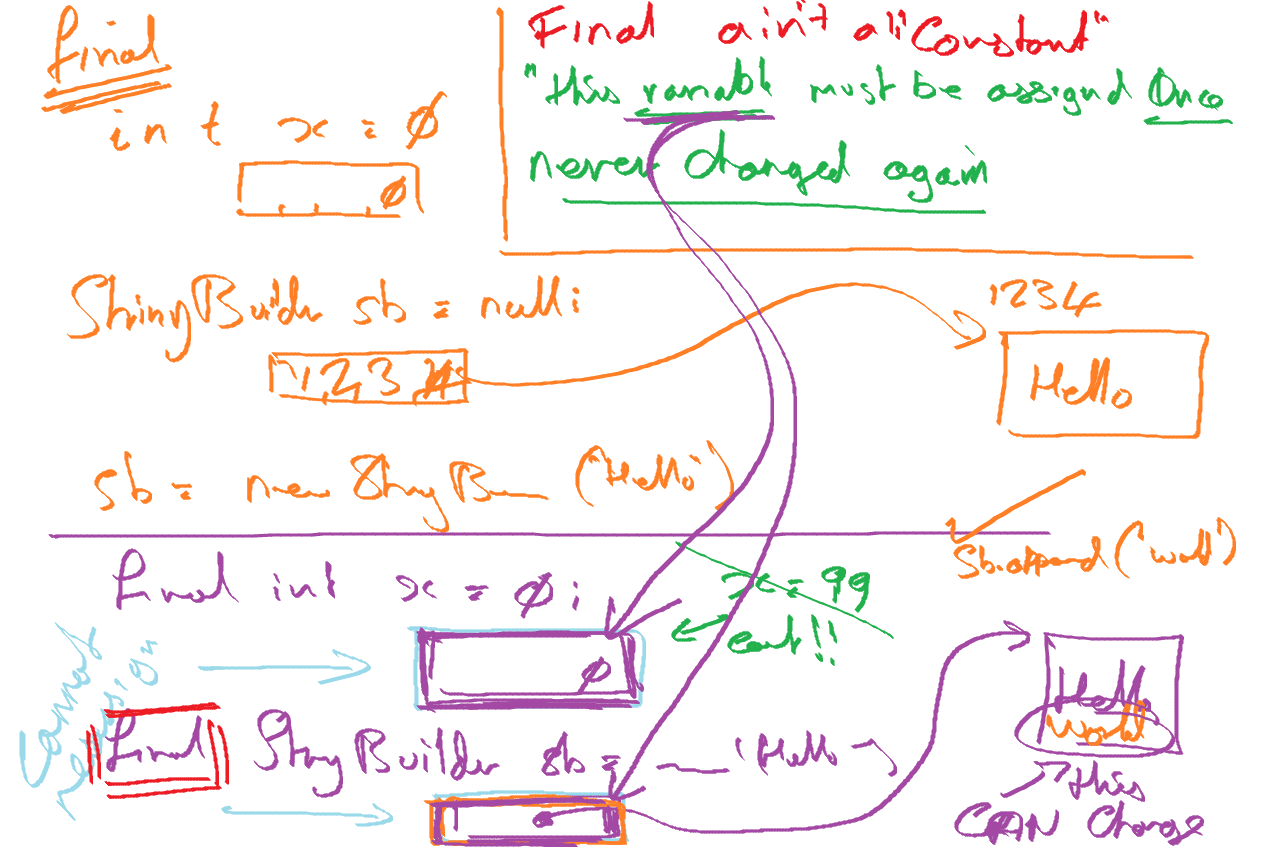 final
int x = 0
0
Final ain't a "Constant"
"this variable must be assigned Once
never changed again
StringBuilder sb = null;
1234
1234
Hello
sb = new StringB ("Hello")
sb.append("world")
final int x = 0;
x = 99
can't!!
0
Cannot
reassign
final StringBuilder sb = "Hello"
Hello
World
this
CAN Change